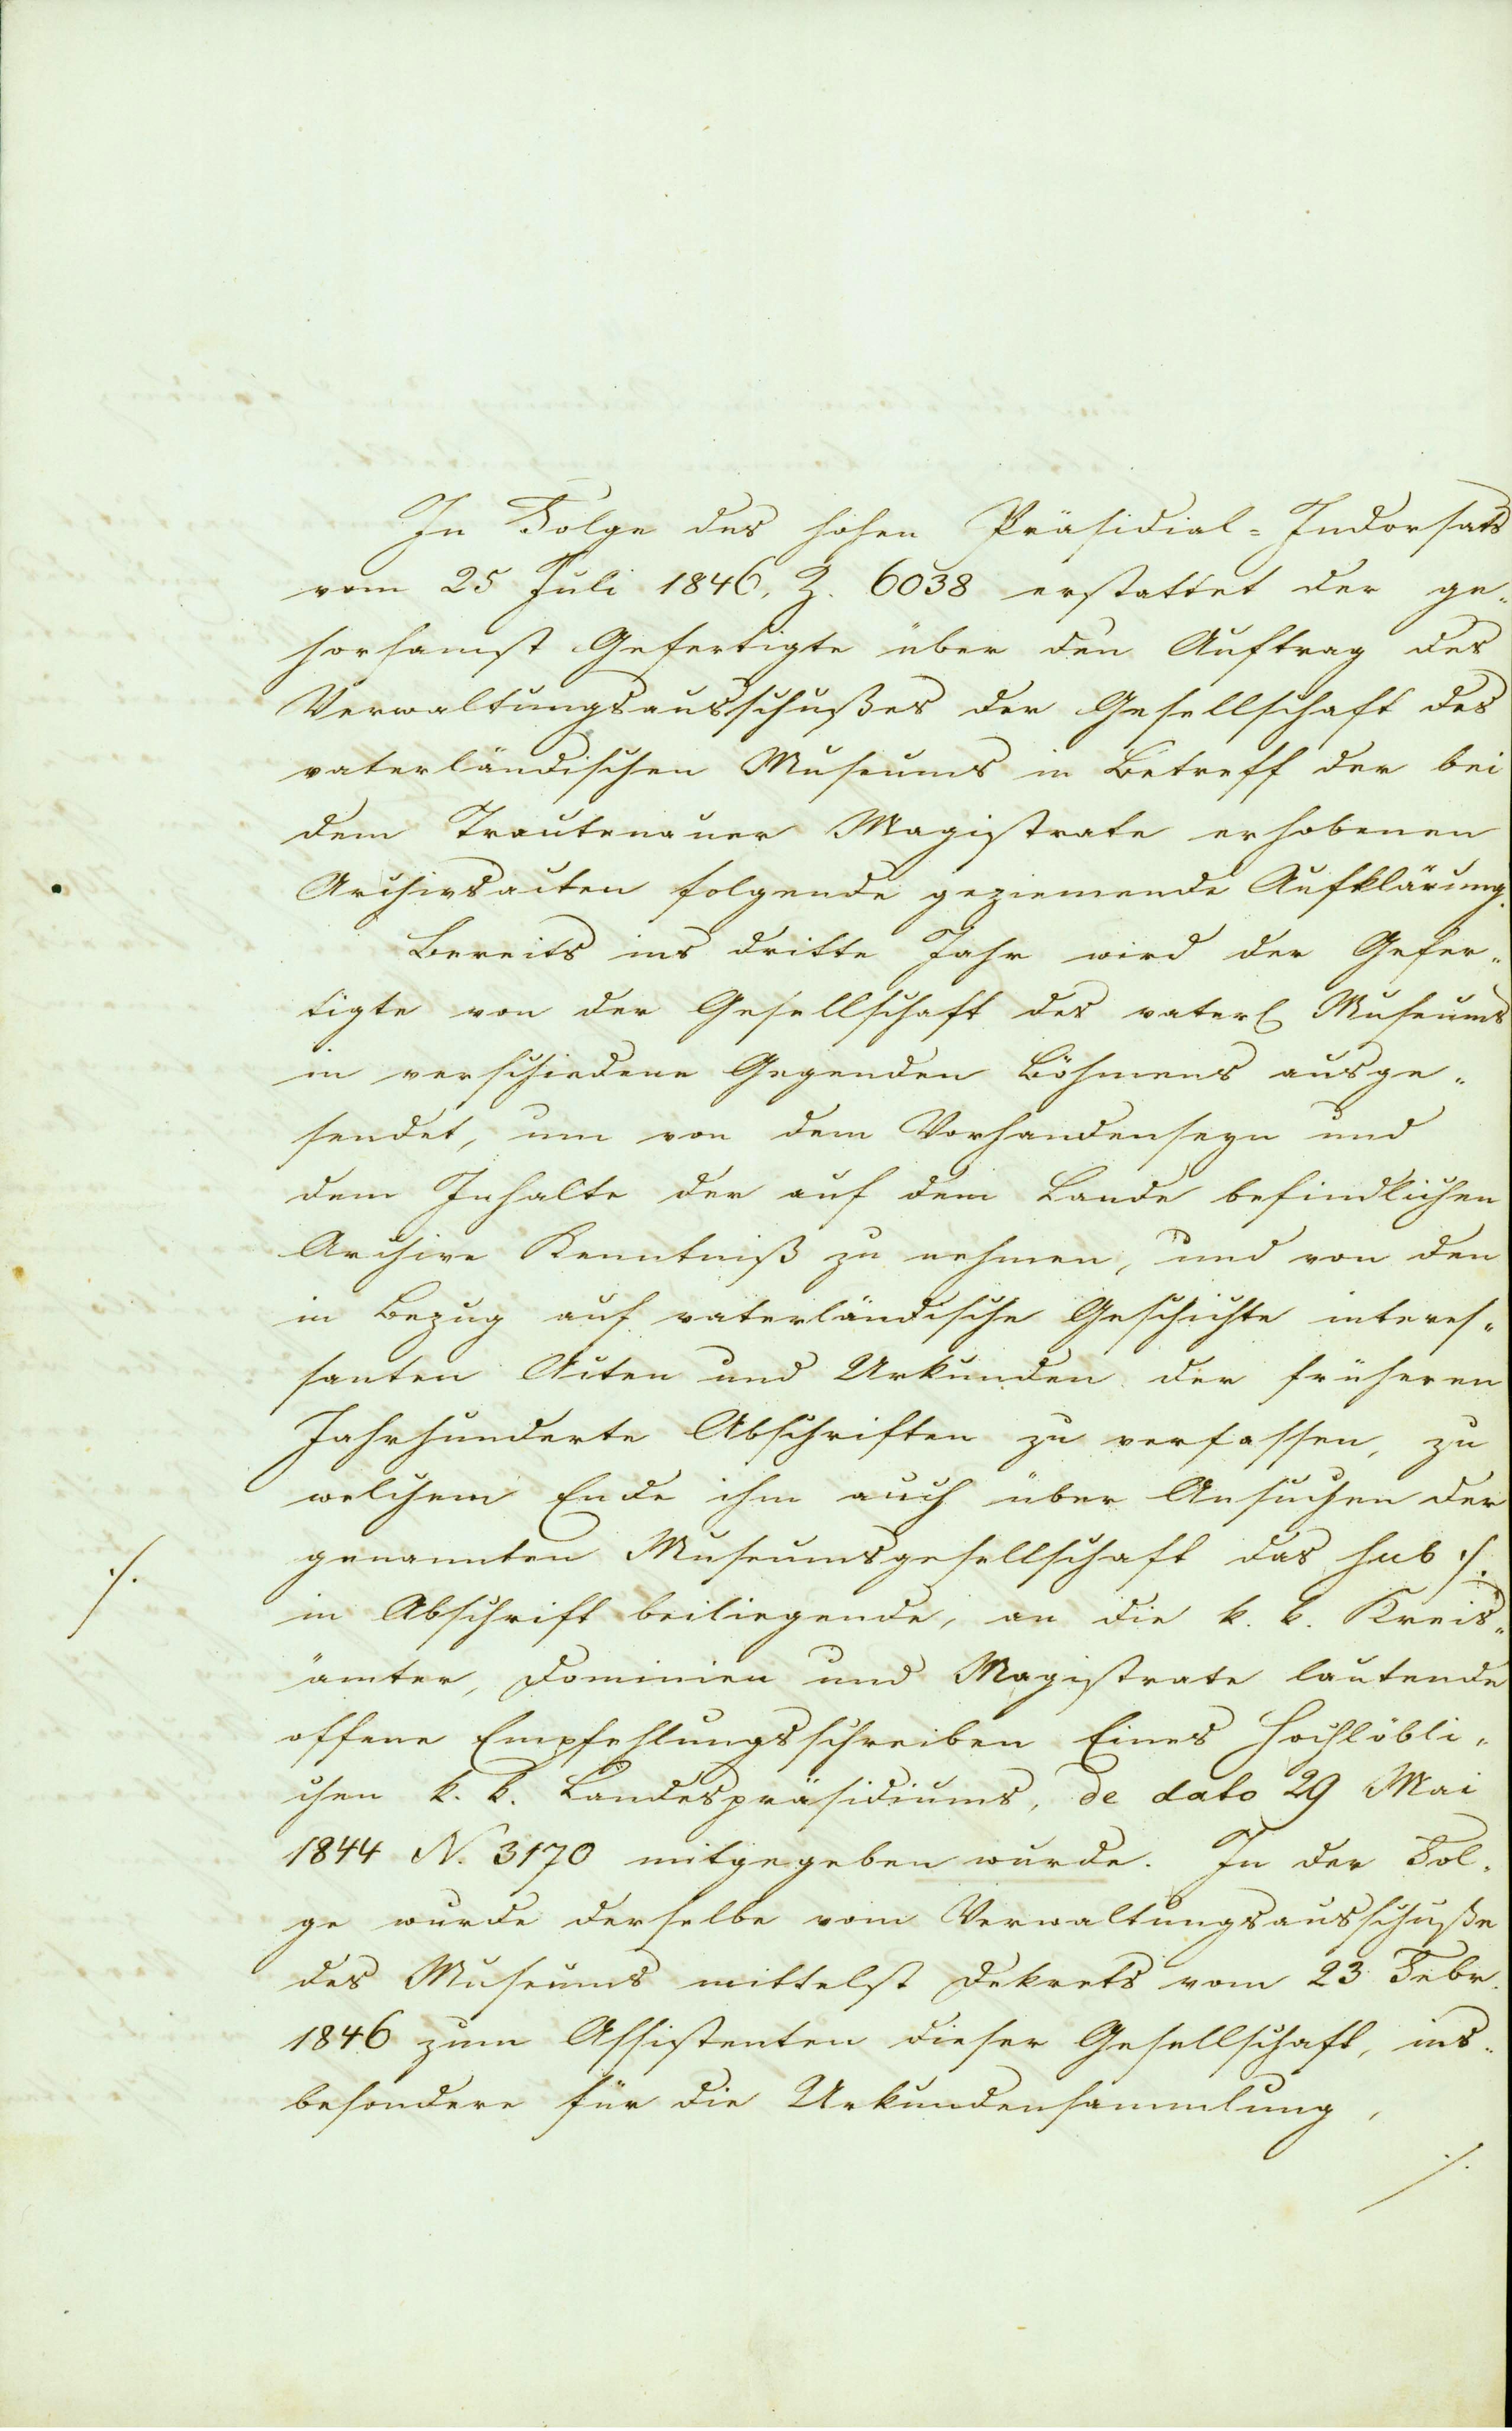 In Folge des hohen Präsidial=Indorsats
vom 25 Juli 1846, Z. 6038 erstattet der ge„
horsamst Gefertigte über den Auftrag des
Verwaltungsausschußes der Gesellschaft des
vaterländischen Museums in Betreff der bei
dem Trautenauer Magistrate erhobenen
Archivsacten folgende geziemende Aufklärung.
Bereits ins dritte Jahr wird der Gefer„
tigte von der Gesellschaft des vaterl Museums
in verschiedene Gegenden Böhmens ausge„
sendet, um von dem Vorhandenseyn und
dem Inhalte der auf dem Lande befindlichen
Archive Kenntniß zu nehmen, und von den
in Bezug auf vaterländische Geschichte interes„
santen Acten und Urkunden der früheren
Jahrhunderte Abschriften zu verfassen, zu
welchem Ende ihm auch über Ansuchen der
genannten Museumsgesellschaft das sub ·/.
·/.
in Abschrift beiliegende, an die k. k. Kreis„
ämter, Dominien und Magistrate lautende
offene Empfehlungsschreiben Eines Hochlöbli„
chen k. k. Landespräsidiums, de dato 29 Mai
1844 N. 3170 mitgegeben wurde. In der Fol„
ge wurde derselbe vom Verwaltungsausschuße
des Museums mittelst Dekrets vom 23 Febr.
1846 zum Assistenten dieser Gesellschaft, ins„
besondere für die Urkundensammlung,
·/.